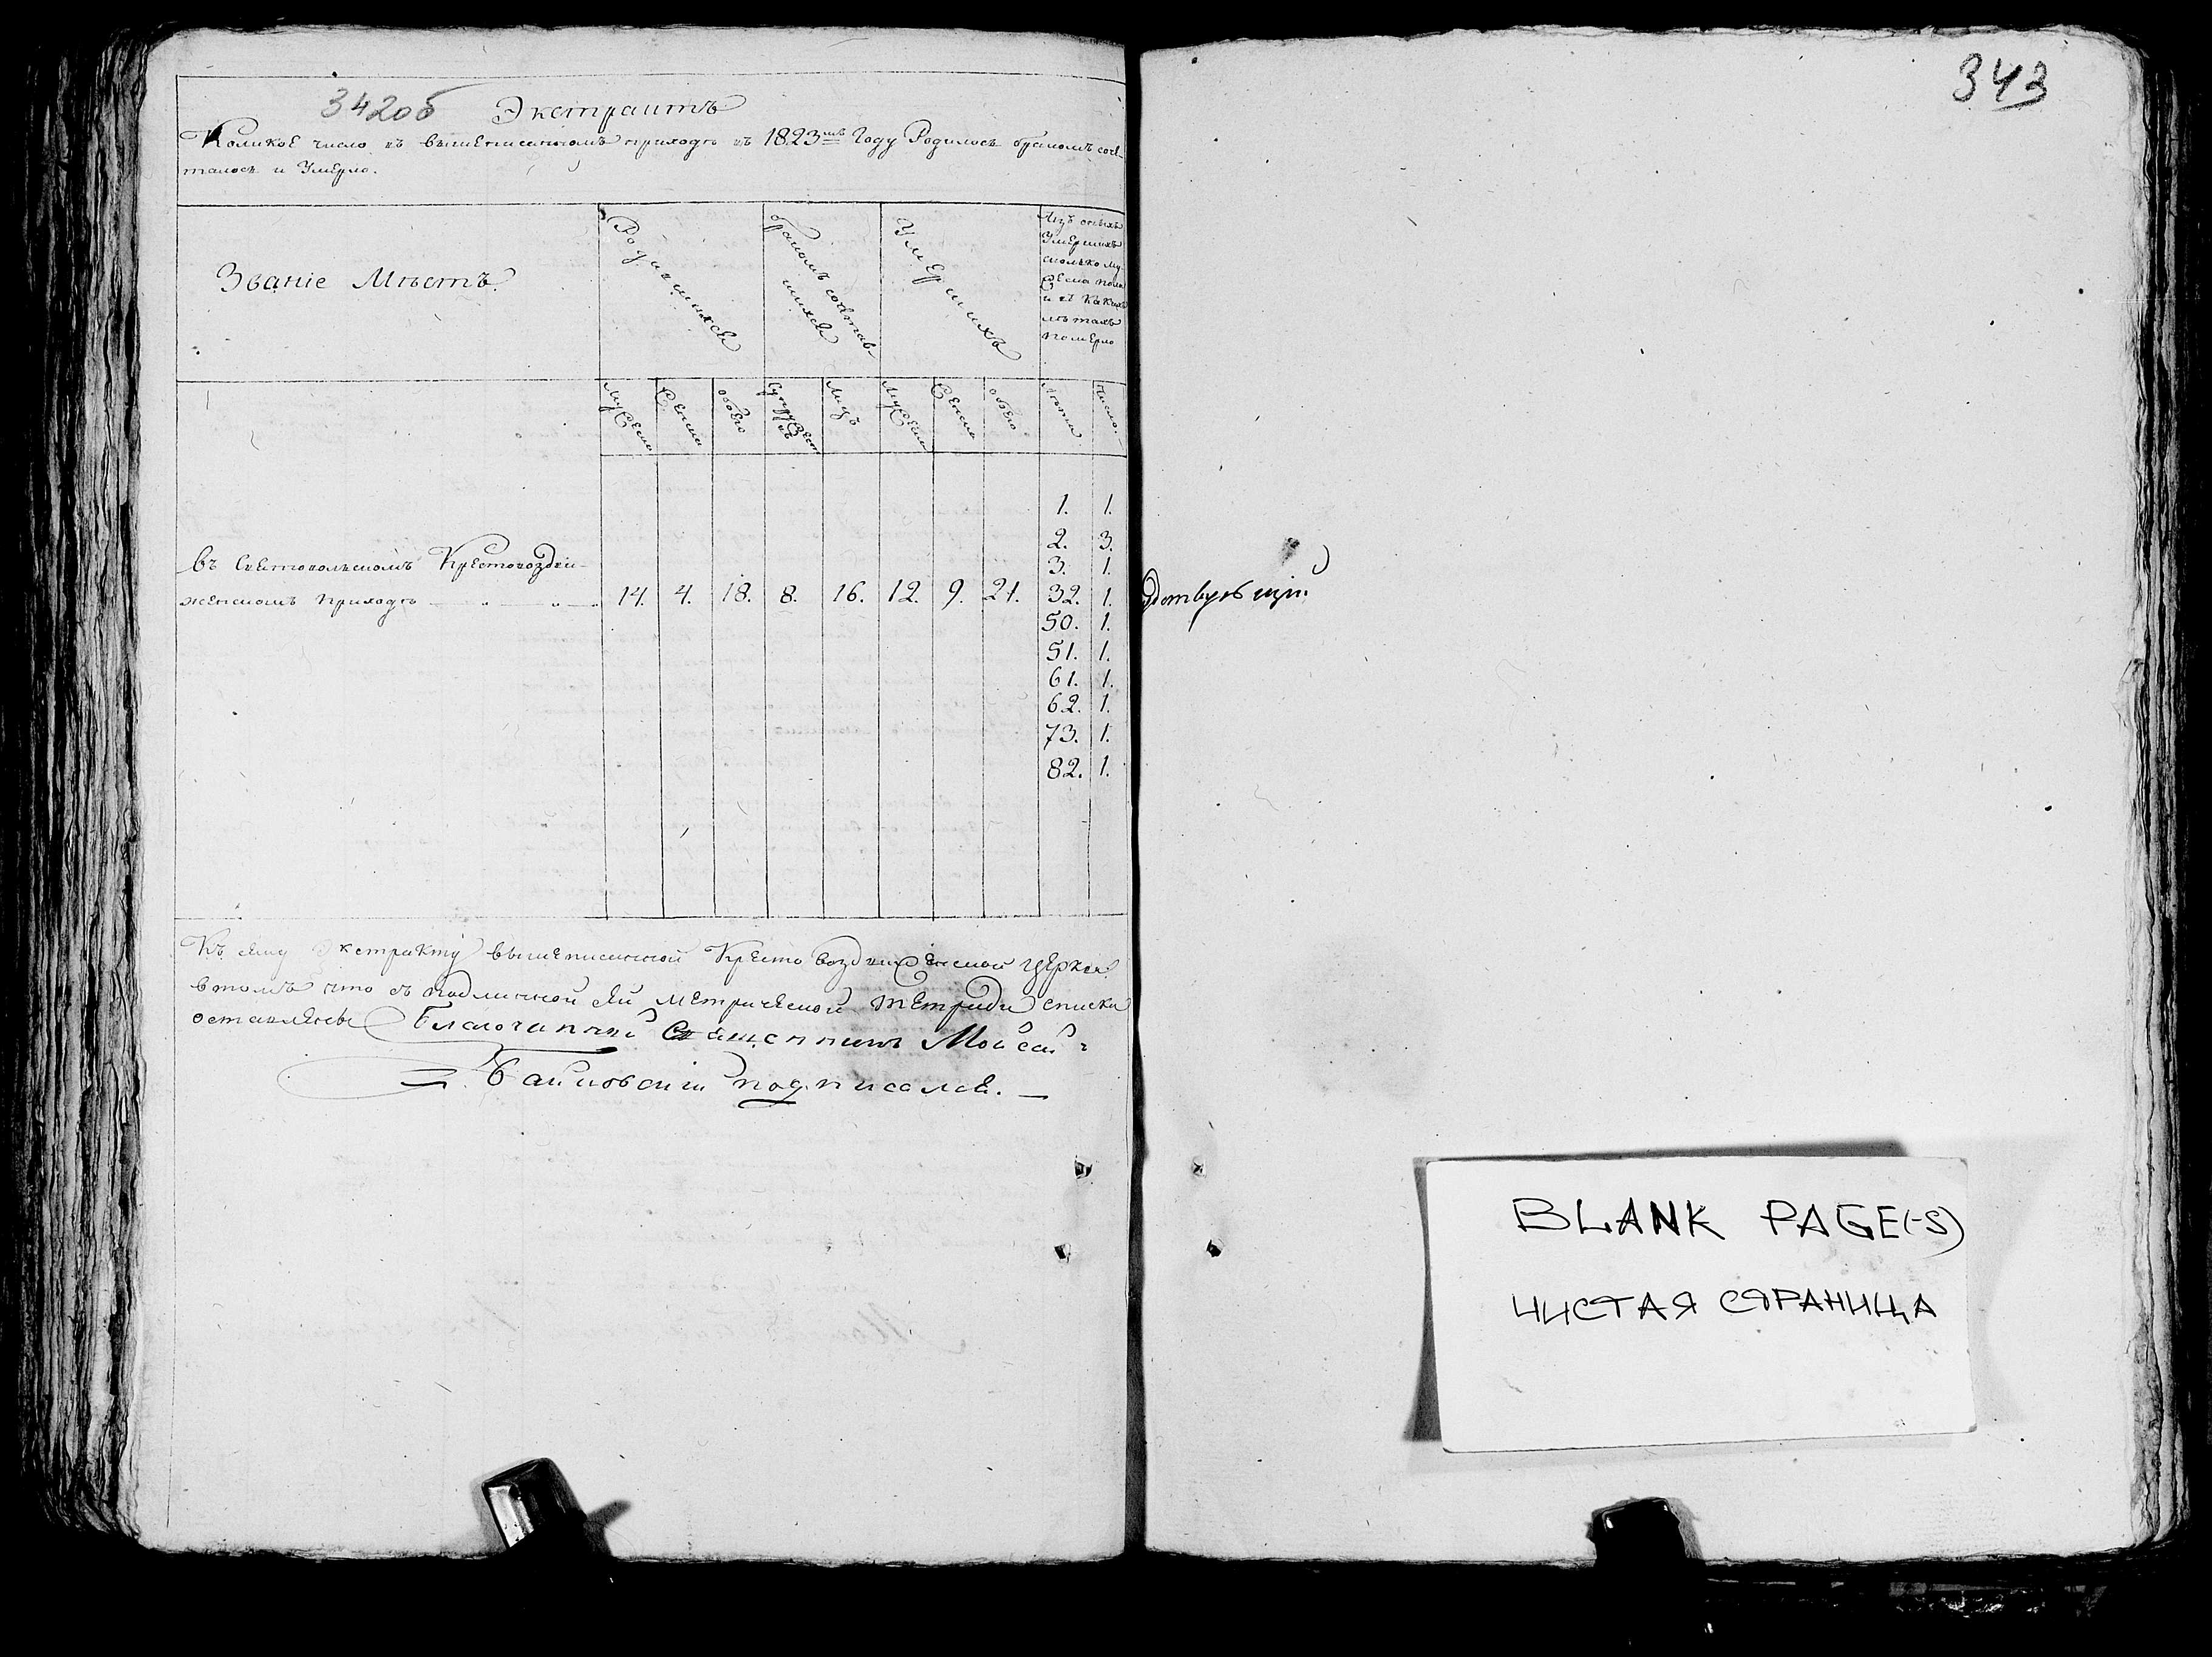 342об Экстрактъ
Коликое число въ вышеписанномъ приходѣ въ 1823мъ Году Родилось бракомъ соче-
талось и Умерло.
Званіе Мѣстъ.
Родившихся
бракомъ сочетав-
шихся
Умершихъ
Изъ оныхъ
Умершихъ
сколько му
жеска пола
и въ какихъ
лѣтахъ
померло
Мужеска
Женска
обоего
Супружест
въ
Лицъ
Мужеска
Женска
обоего
Лѣта
Число.
въ Крестовоздви-
женскомъ Приходѣ 14. 4. 18. 8. 16. 12. 9. 21.
1. 1.
2. 3.
3. 1.
32. 1.
50. 1.
51. 1.
61. 1.
62. 1.
73. 1.
82. 1.
Къ сему Экстракту вышеписанной Кресто воздвиженской церкви
втомъ что съ подлинной сей метрической тетради списки
оставлены Благочинный Священникъ Мойсей
подписался.
343
BLANK PAGE(-S)
ЧИСТАЯ СТРАНИЦА